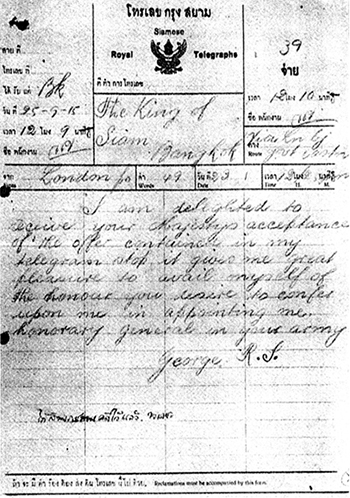 โทรเลข กรุง สยาม
Siamese
Royal Telegraphs
39
จ่าย
ที่
โทรเลข ที่
ได้ รับ แต่ Bk
วัน ที่ 25-9-15
เวลา 12 โมง 9 นาที
ชื่อ พนักงาน
ที่ ทำ การ โทรเลข
เวลา 12 โมง 10 นาที
ชื่อ พนักงาน
ทาง
Route
The King of
Siam
Bangkok
จาก London
คำ 49
Words
วัน ที่ 23
เวลา
Time
โมง
H.
M.
I am delighted to
receive your Majestys acceptance
of the offer contained in my
telegram stop it gives me great
pleasure to avail myself of
the honour you desire to confer
upon me in appointing me
honorary general in your army
George R.I.
Reclamations must be accompanied by this form.